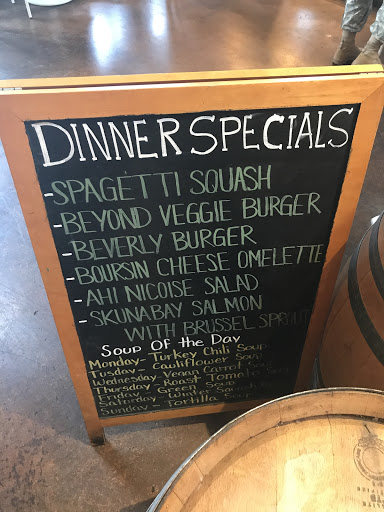 DINNER SPECIALS
-SPAGETTI SQUASH
-BEYOND VEGGIE BURGER
-BEVERLY BURGER
-BOURSIN CHEESE OMELETTE
-AHI NICOISE SALAD
-SKUNABAY SALMON
WITH BRUSSEL SPROUT
Soup Of the Day
Monday- Turkey Chili Soup
Tusday- Cauliflower Soup
Wednesday-Vegan Carrot Soup
Thursday- Roast Tomato Soup
Friday- Green Soup
Saturday- Winter Squash
Sunday- Tortilla Soup